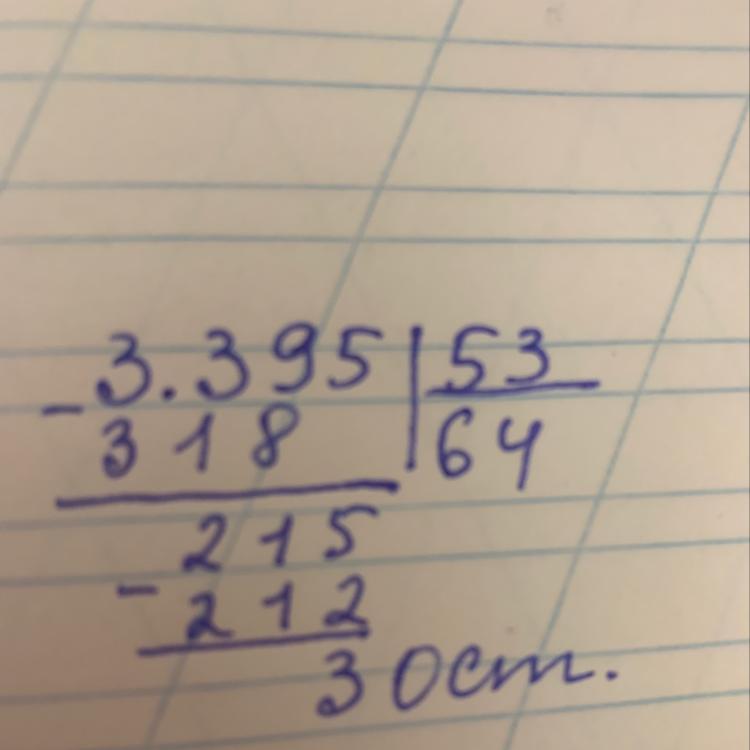 3.395 | 53
- 318 | 64
215
- 212
3 ост.